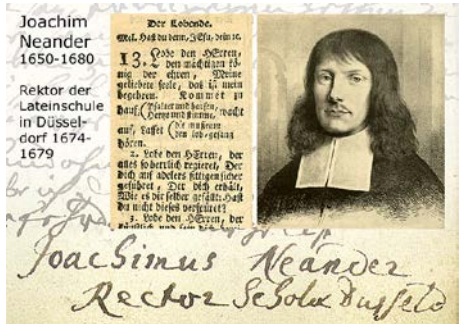 Joachim
Neander
1650-1680
Rektor der
Lateinschule
in Düssel-
dorf 1674-
1679
Der Lobende.
Mel. Hast du denn, JEsu, dein ꝛc.
13. Lobe den HErren,
den mächtigen kö-
nig der ehren, Meine
geliebete seele, das ist mein
begehren. Kommet zu
hauf, Psalter und harfen, wacht
auf, Lasset die musicam
hören.
2. Lobe den HErren, der
alles so herrlich regieret, Der
dich auf adelers fittigen sicher
geführet, Der dich erhält,
Wie es dir selber gefällt. Hast
du nicht dieses verspüret?
3. Lobe den HErren, der
Joachimus Neander
Rector Scholæ Dusseld